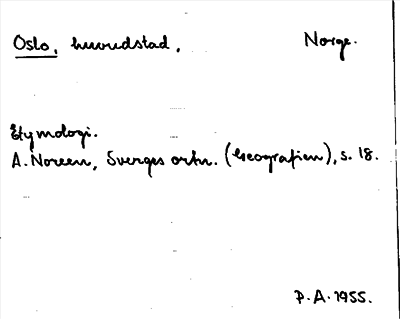 Oslo, huvudstad, Norge.
Etymologi.
A. Noreen, Sveriges ortn. (Geografien), s. 18.
P.A. 1955.